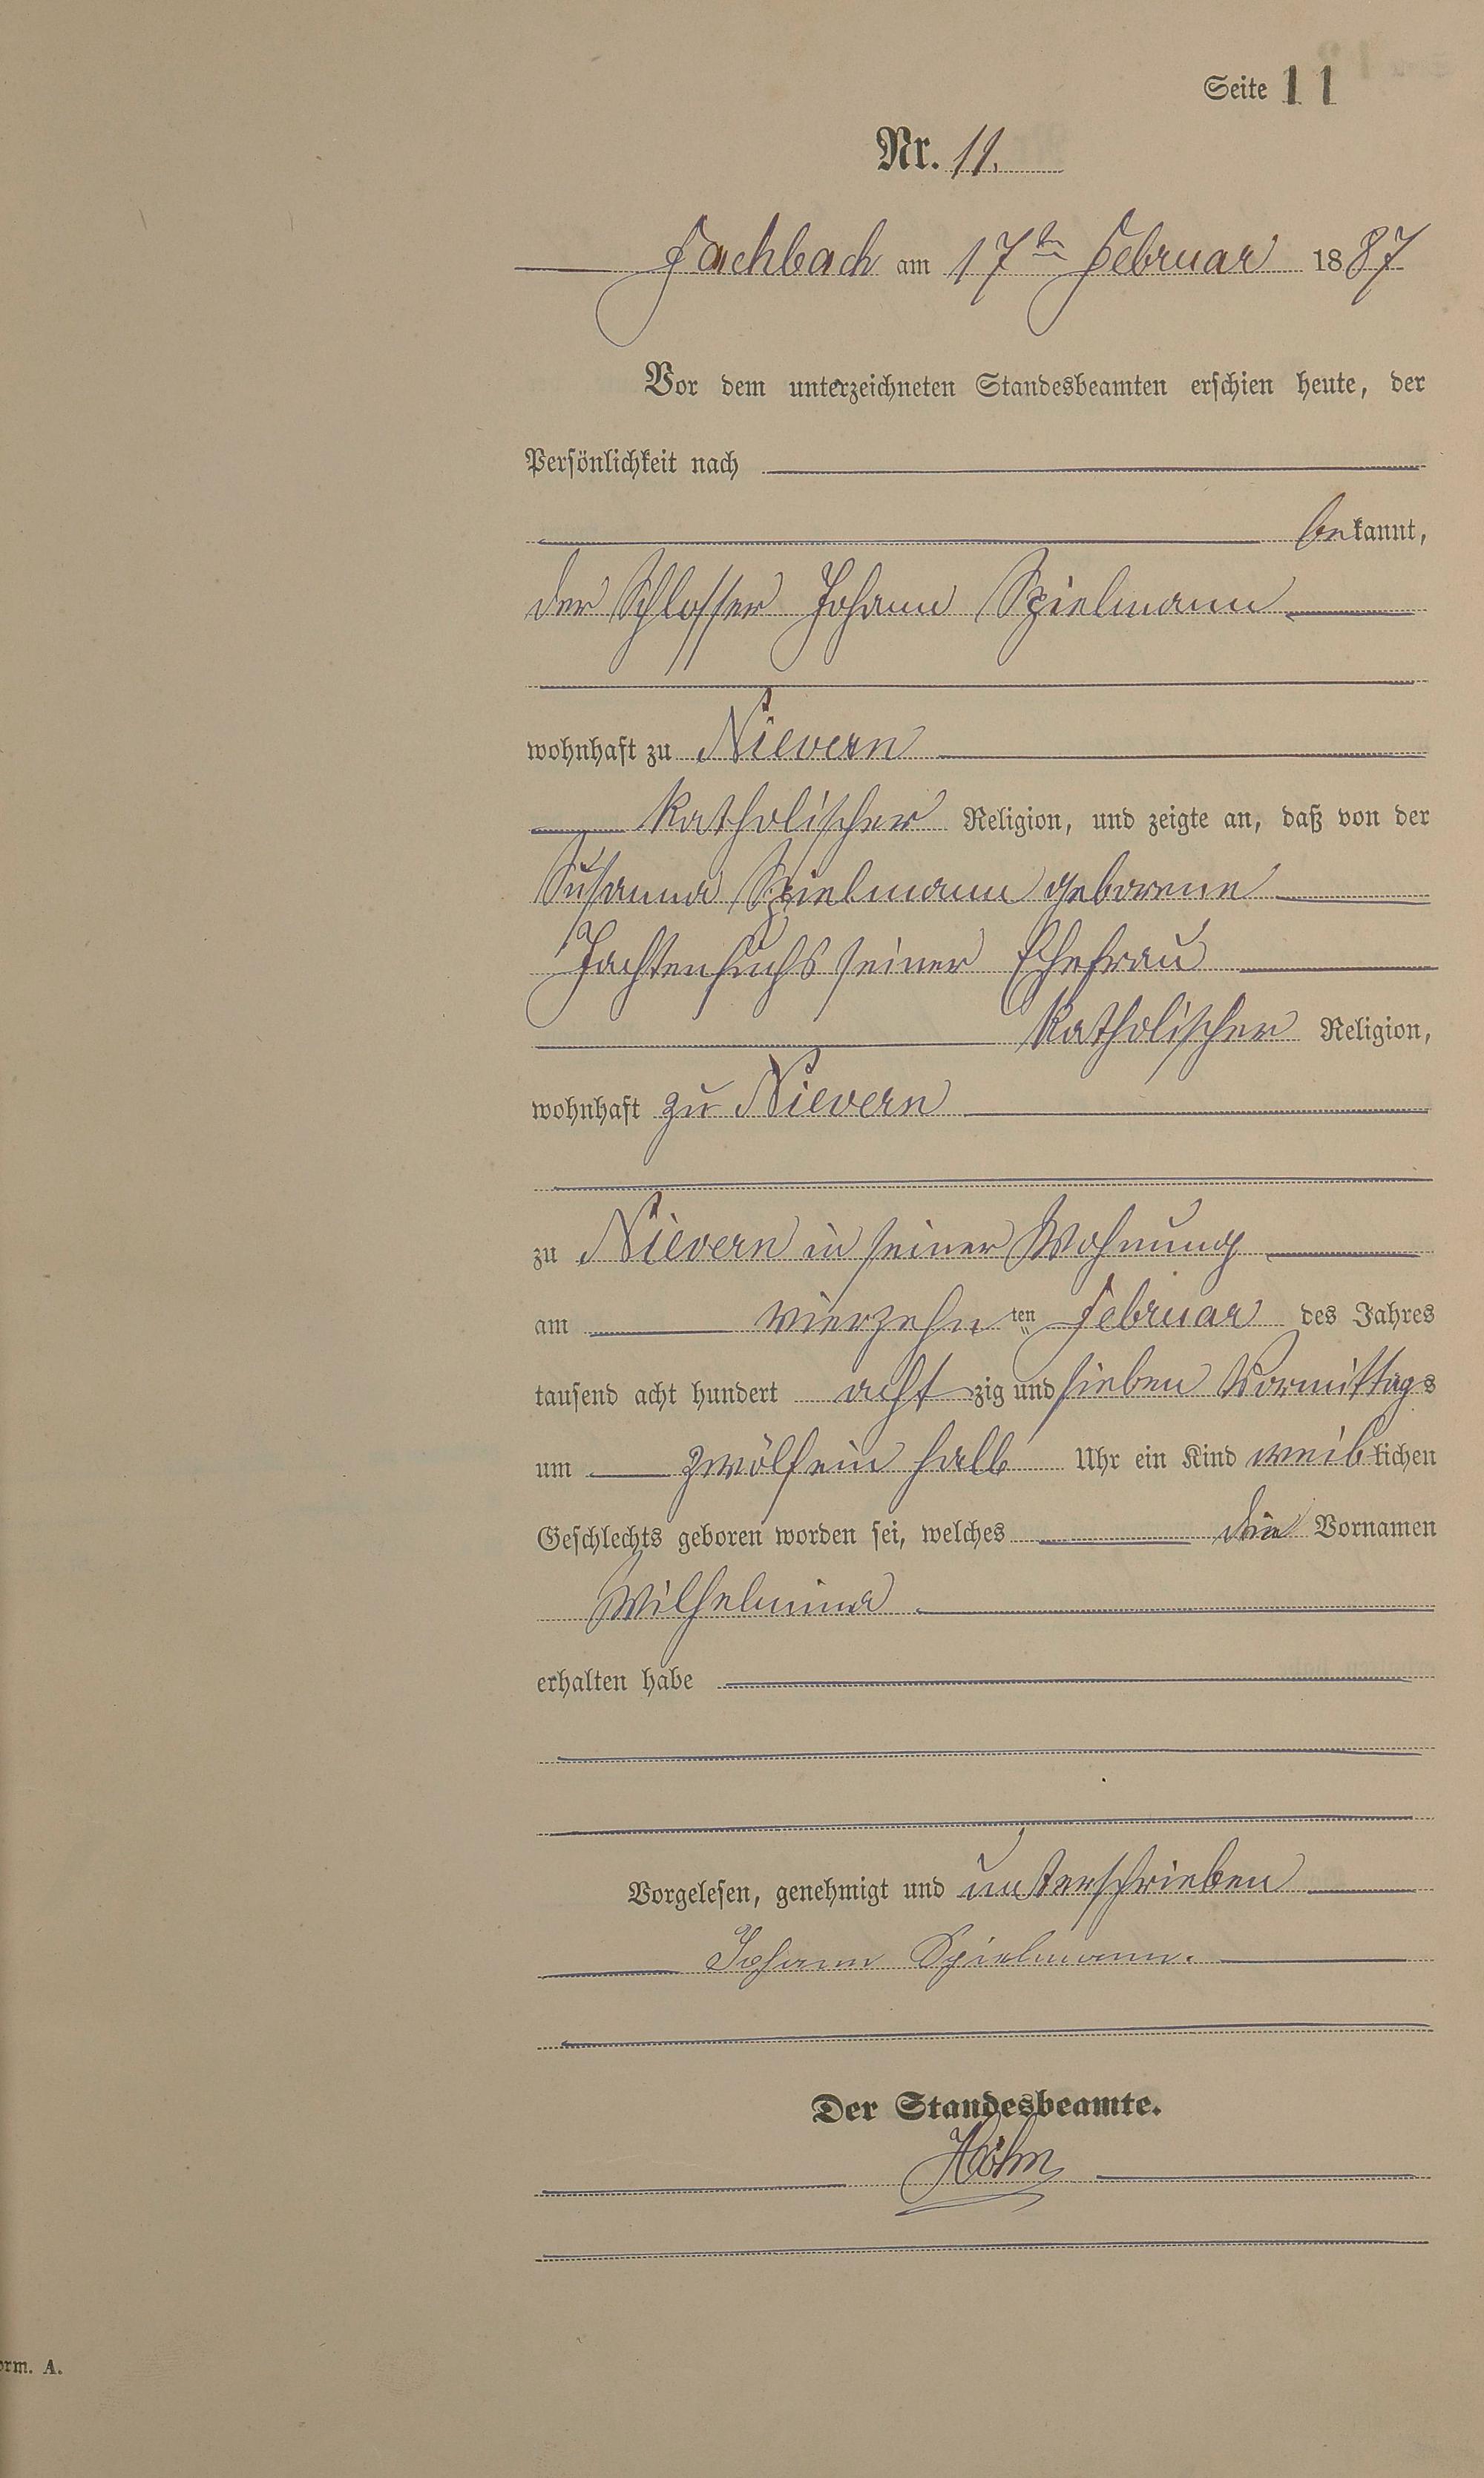 Seite 11
Nr. 11.
Fachbach am 17ten Februar 1887
Vor dem unterzeichneten Standesbeamten erschien heute, der
Persönlichkeit nach
bekannt,
der Schlosser Johann Spielmann
wohnhaft zu Nievern
katholischer Religion, und zeigte an, daß von der
Susanna Spielmann geborene
Jachtenfuchs seiner Ehefrau
katholischer Religion,
wohnhaft zu Nievern
zu Nievern in seiner Wohnung
am vierzehn ten Februar des Jahres
tausend acht hundert acht zig und sieben Vormittags
um zwölfein halb Uhr ein Kind weiblichen
Geschlechts geboren worden sei, welches die Vornamen
Wilhelmina
erhalten habe
Vorgelesen, genehmigt und unterschrieben
Johann Spielmann.
Der Standesbeamte.
Höhn
orm. A.